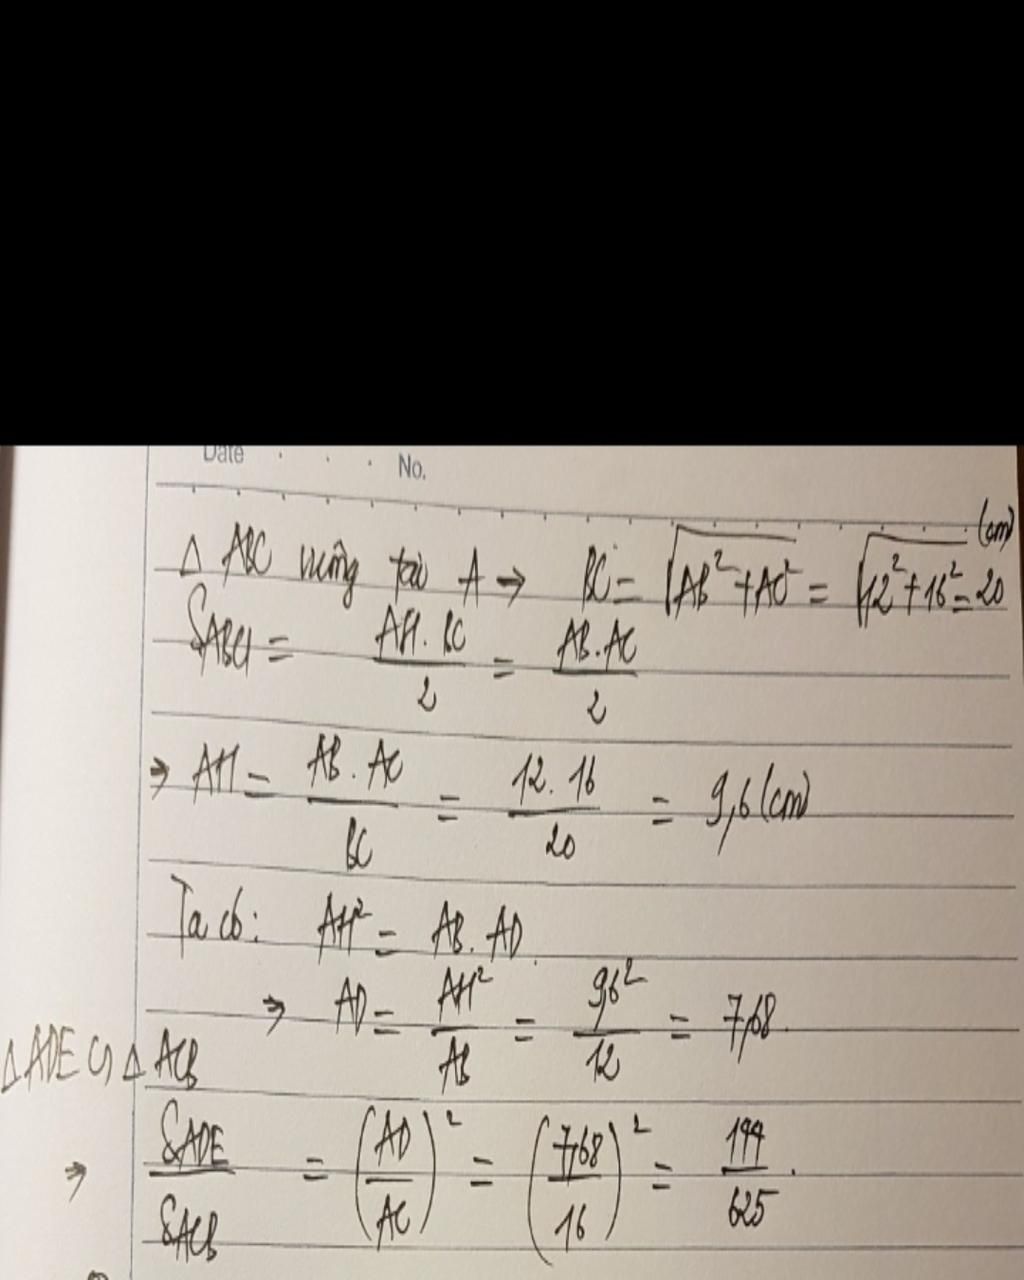 Date No.
Δ ABC vuông tại A → BC = √AB² + AC² = √12² + 16² = 20 (cm)
SABC = AH . BC / 2 = AB . AC / 2
⇒ AH = AB . AC / BC = 12 . 16 / 20 = 9,6 (cm)
Ta có: AH² = AB . AD.
⇒ AD = AH² / AB = 9,6² / 12 = 7,68.
Δ ADE ∽ Δ ACB
⇒ SADE / SACB = (AD / AC)² = (7,68 / 16)² = 144 / 625.